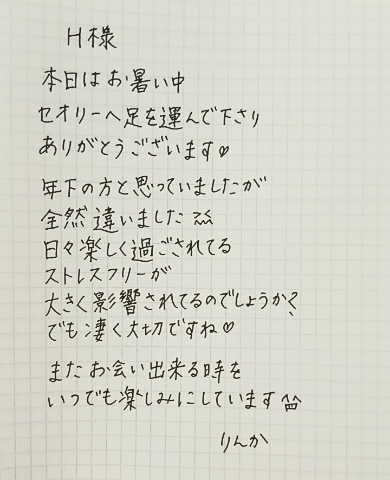 H様
本日はお暑い中
セオリーへ足を運んで下さり
ありがとうございます♡
年下の方と思っていましたが
全然違いました
日々楽しく過ごされてる
ストレスフリーが
大きく影響されてるのでしょうか?
でも凄く大切ですね♡
またお会い出来る時を
いつでも楽しみにしています^^
りんか